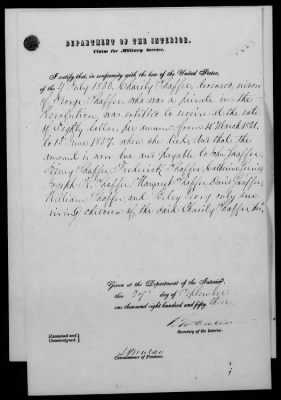 DEPARTMENT OF THE INTERIOR.
Claim for Military Service.
I certify that, in conformity with the law of the United States,
of the 4 July 1836, Charity Shaffer, deceased, widow
of George Shaffer who was a private in the
Revolution, was entitled to receive at the rate
of Eighty dollars per annum from 4 March 1831,
to 13 June 1837, when she died, but that the
amount is now due and payable to Shaffer,
Henry Shaffer, Frederick Shaffer, Catharine
Joseph Shaffer, Margaret Shaffer, David Shaffer,
William Shaffer and only sur-
viving children of the said Charity Shaffer
Given at the Department of the Interior
this 27 day of September
one thousand eight hundred and fifty
Secretary of the Interior.
Examined and
Countersigned.
Commissioner of Pensions.